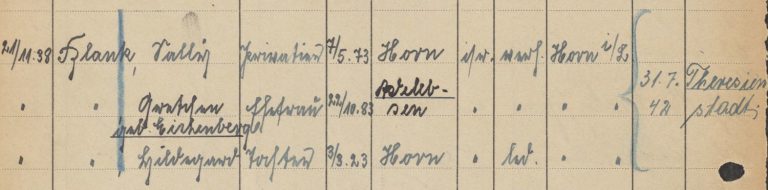 21/11.38 Blank, Sally Privatier 7/5.73 Horn isr. verh. Horn i/L 31.7. 42 Theresienstadt;
" " Gretchen Ehefrau 22/10.83 Adelebsen " " " "
geb. Eichenberg
" " Hildegard Tochter 3/3.23 Horn " led. " "